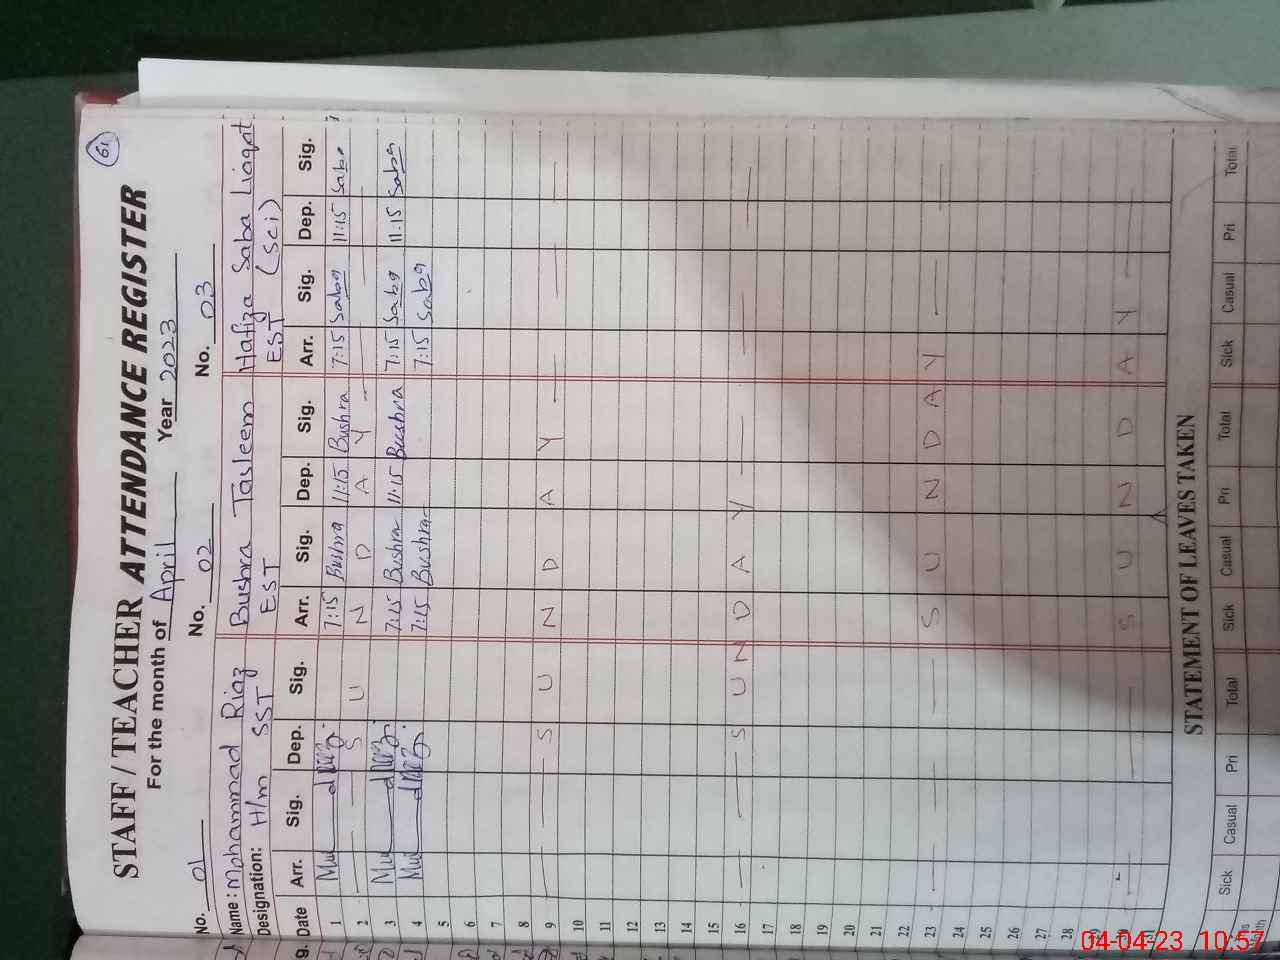 61
STAFF / TEACHER ATTENDANCE REGISTER
For the month of April Year 2023
No. 01 No. 02 No. 03
Name : Mohammad Riaz Bushra Tasleem Hafiza Saba Liaqat
Designation: H/m SST EST EST (Sci)
g. Date Arr. Sig. Dep. Sig. Arr. Sig. Dep. Sig. Arr. Sig. Dep. Sig.
1 7:15 Bushra 11:15 Bushra 7:15 Saba 11:15 Saba
2 S U N D A Y
3 7:15 Bushra 11:15 Bushra 7:15 Saba 11:15 Saba
4 7:15 Bushra 7:15 Saba
5
6
7
8
9 S U N D A Y
10
11
12
13
14
15
16 S U N D A Y
17
18
19
20
21
22
23 S U N D A Y
24
25
26
27
28
29
30 S U N D A Y
31
STATEMENT OF LEAVES TAKEN
Sick Casual Pri Total Sick Casual Pri Total Sick Casual Pri Total
04-04-23 10:57